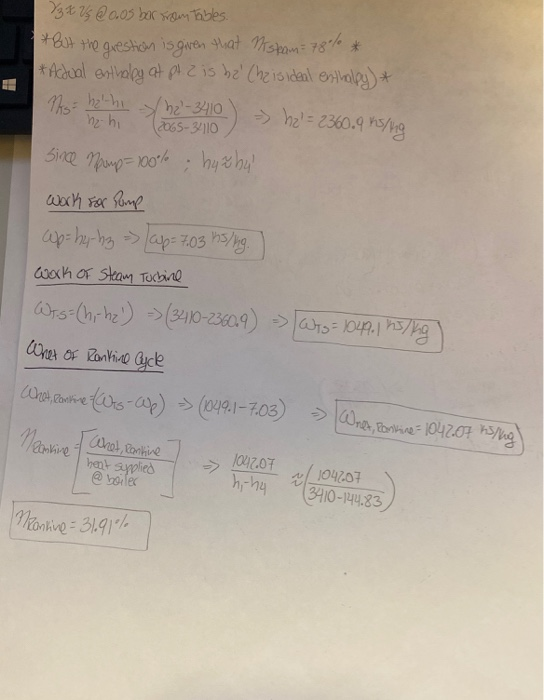 v3 ≈ vf @ 0.05 bar from Tables.
*But the question is given that ηsteam = 78% *
*Actual enthalpy at pt. 2 is h2' (h2 is ideal enthalpy)*
ηTS = (h2'-h1)/(h2-h1) => (h2'-3410)/(2065-3410) => h2' = 2360.9 kJ/kg
Since ηpump = 100% ; h4 ≈ h4'
Work for Pump
ωp = h4-h3 => ωp = 7.03 kJ/kg.
Work of Steam Turbine
ωTS = (h1-h2') => (3410-2360.9) => ωTS = 1049.1 kJ/kg
Wnet of Rankine Cycle
ωnet, Rankine = (ωTS-ωp) => (1049.1-7.03) => ωnet, Rankine = 1042.07 kJ/kg
ηRankine = [ωnet, Rankine / heat supplied @ boiler] => 1042.07/(h1-h4) ≈ (1042.07/(3410-144.83))
ηRankine = 31.91%